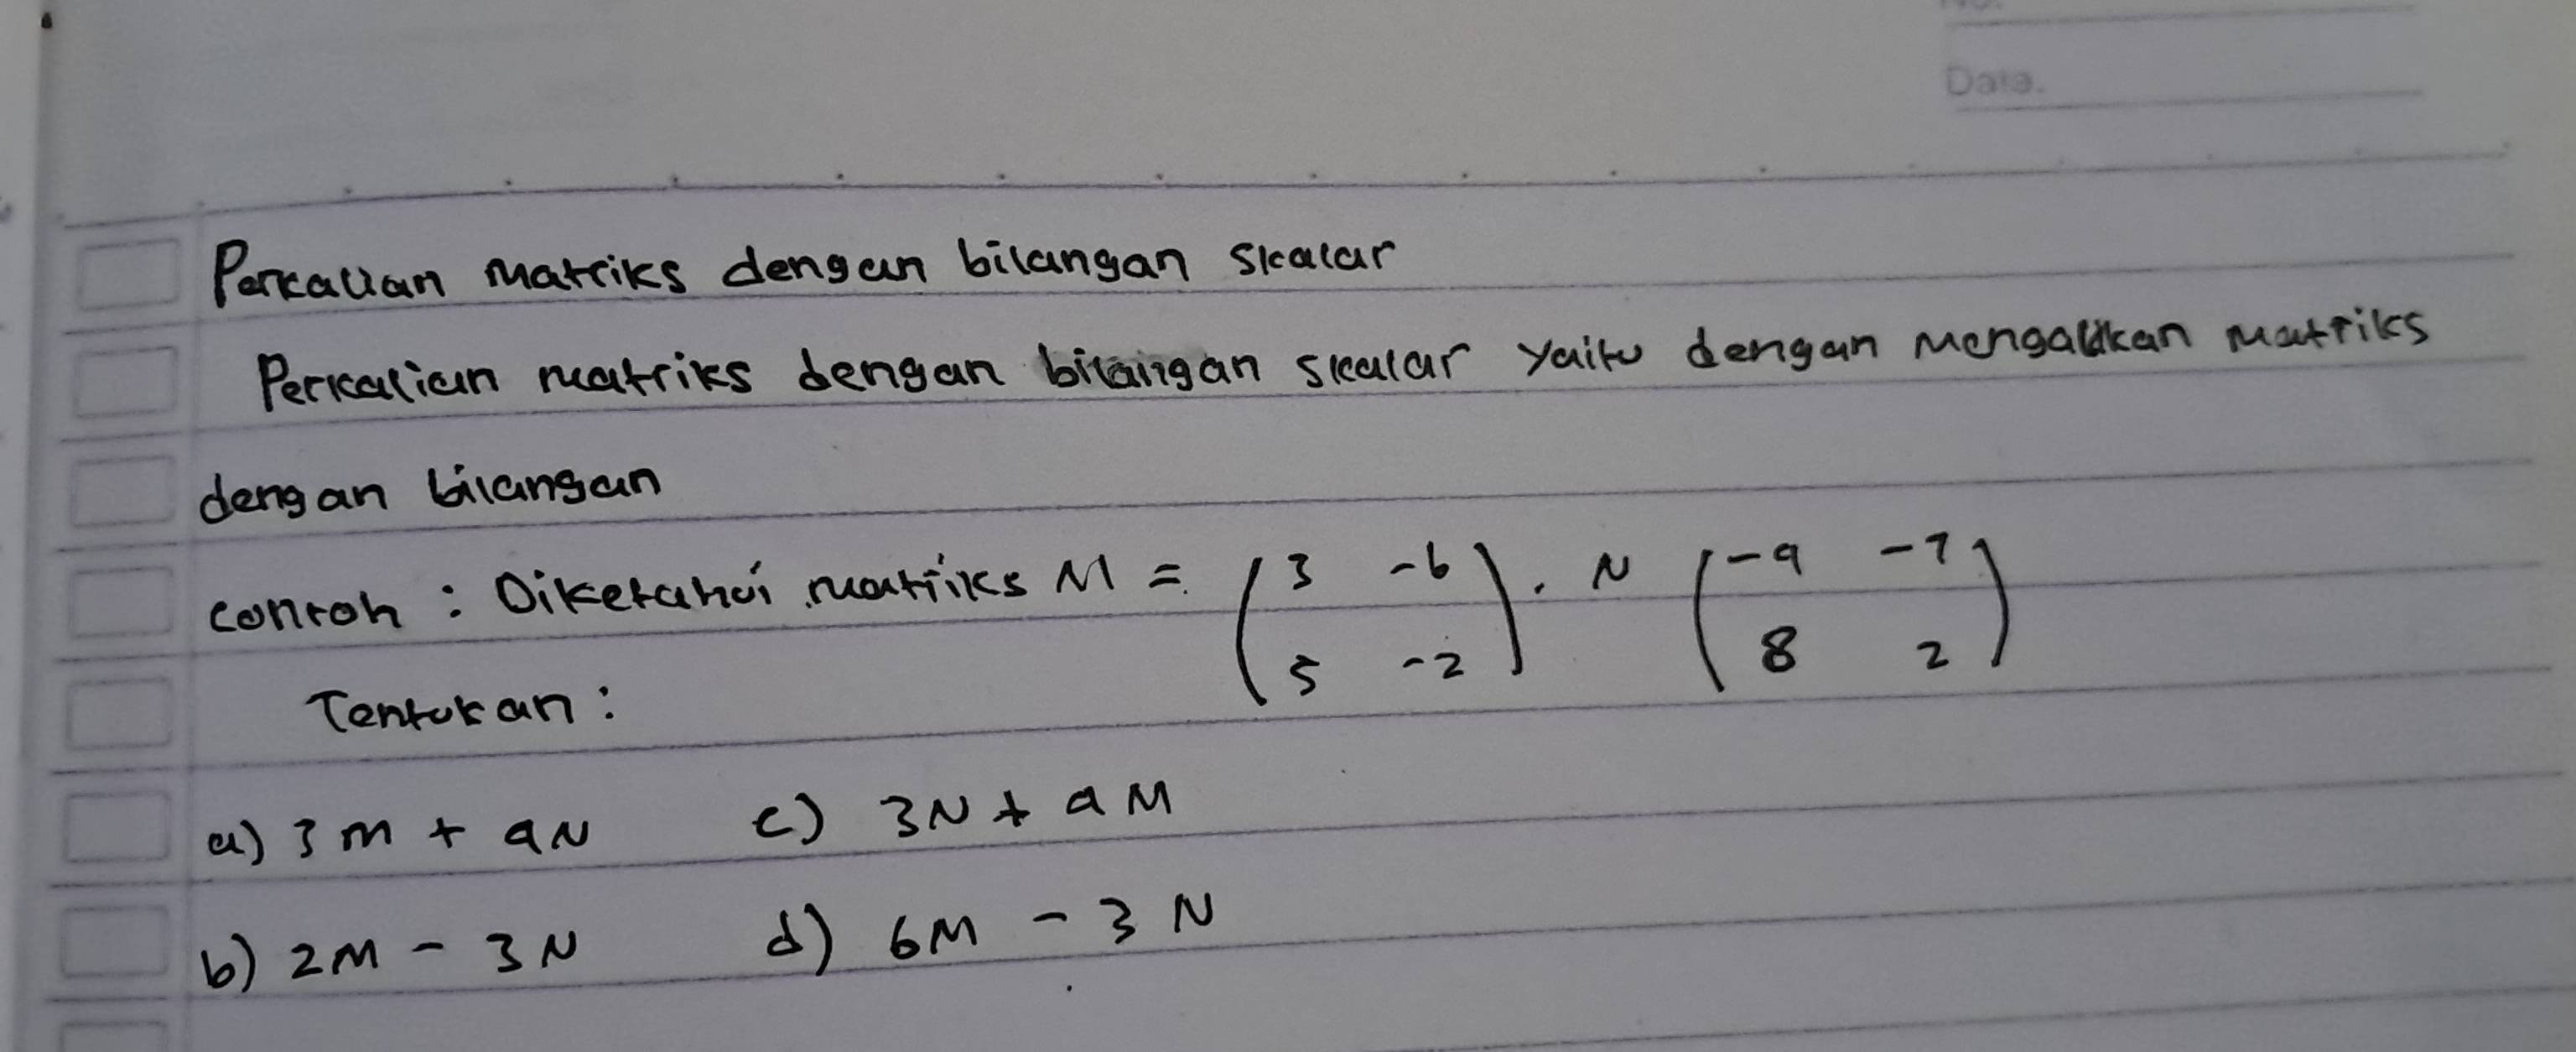 No.
Date.
Perkalian matriks dengan bilangan skalar
Perkalian matriks dengan bilangan skalar yaitu dengan mengalikan matriks
dengan bilangan
contoh : Diketahui matriks M = (3 -6 5 -2). N (-9 -7 8 2)
Tentukan :
a) 3M + 9N c) 3N + 9M
b) 2M - 3N d) 6M - 3N